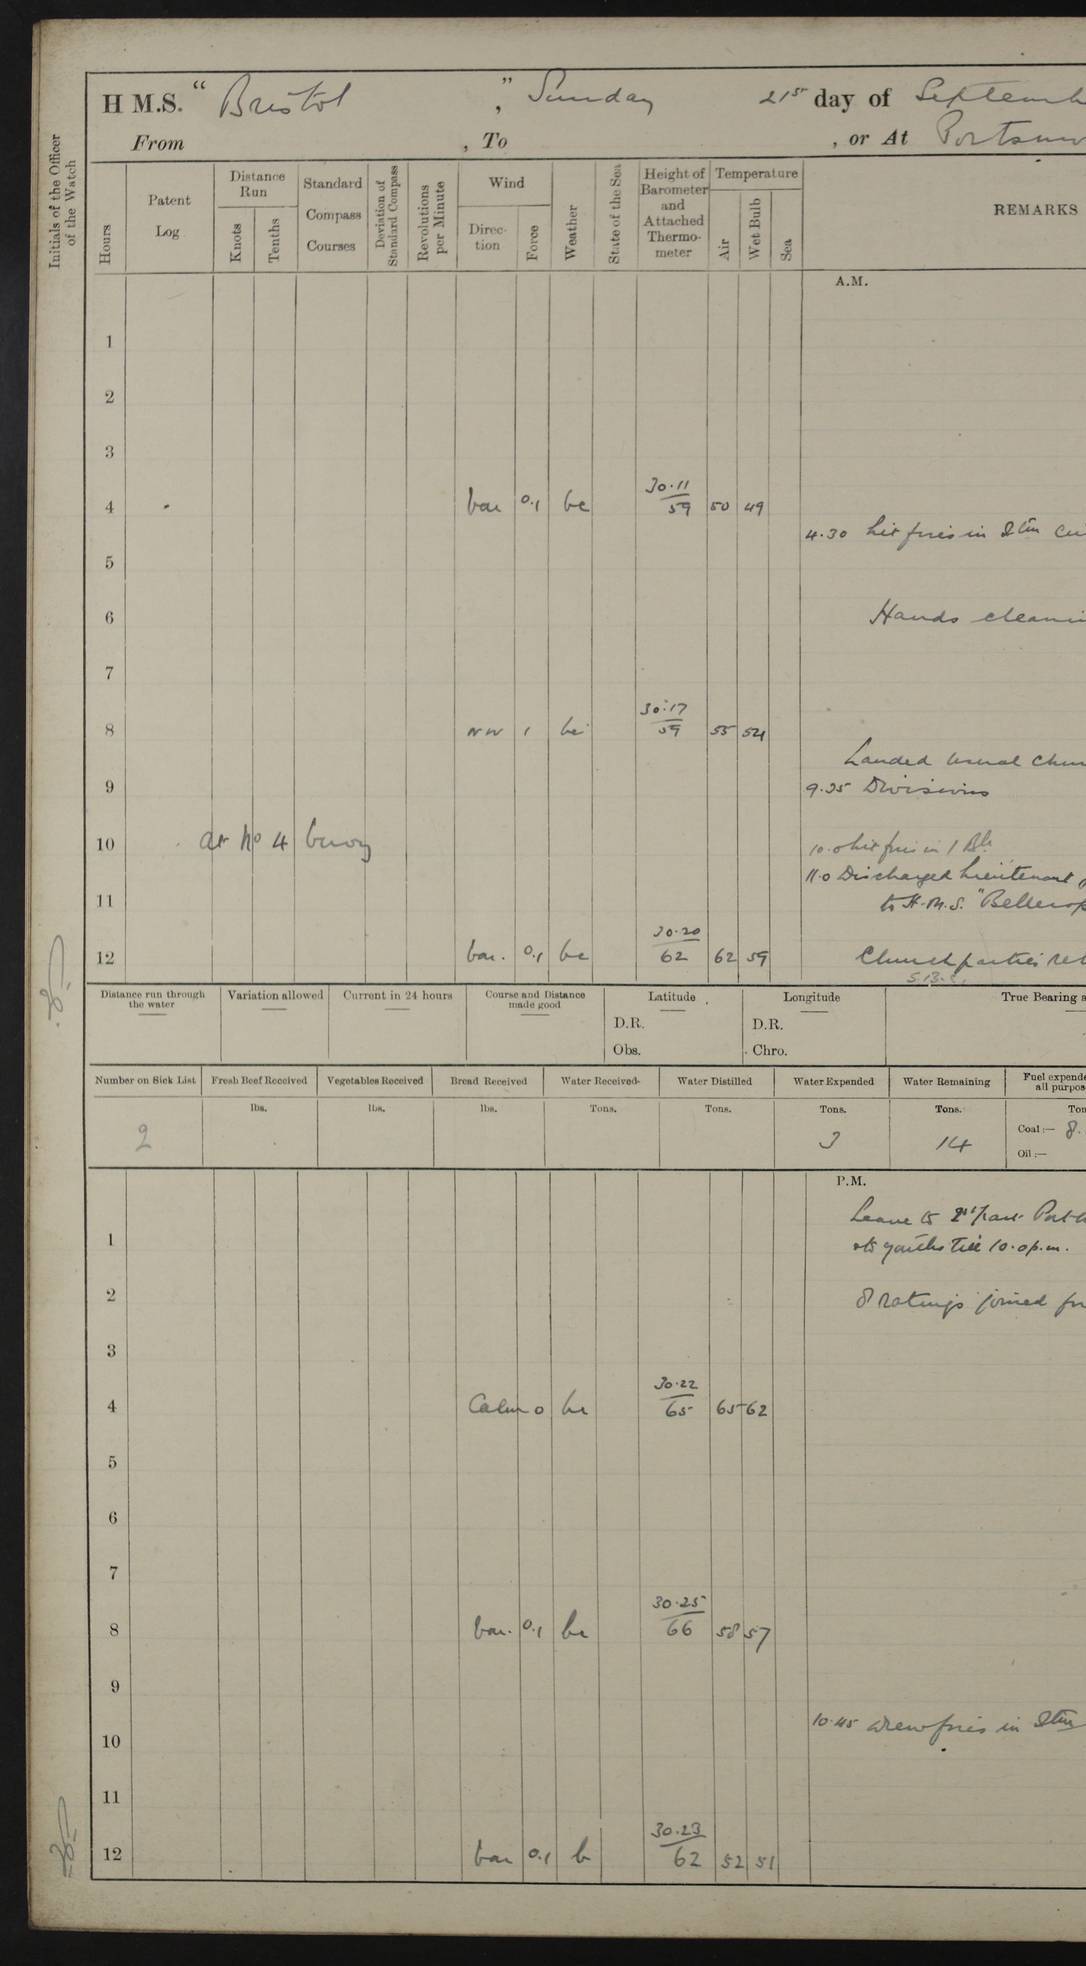 H M.S. " Bristol ", Sunday 21st day of Septemb
From , To , or At Portsmo
Initials of the Officer of the Watch
Hours
Patent Log
Distance Run
Knots
Tenths
Standard Compass Courses
Deviation of Standard Compass
Revolutions per Minute
Wind
Direc-tion
Force
Weather
State of the Sea
Height of Barometer and Attached Thermo-meter
Temperature
Air
Wet Bulb
Sea
REMARKS
A.M.
1
2
3
4 var 0.1 bc 30.11 59 50 49
4.30 Lit fires in Stm Cu
5
6 Hands cleani
7
8 NW 1 bc 30.17 59 55 54
Landed usual Chur
9
9.25 Divisions
10 at No 4 buoy
10.0 Lit fires in 1 Blr
11.0 Discharged Lieutenant
11 to H.M.S. "Bellerop
12 var. 0.1 bc 30.20 62 62 59 Church parties ret
Distance run through the water
Variation allowed
Current in 24 hours
Course and Distance made good
Latitude
D.R.
Obs.
Longitude
D.R.
Chro.
True Bearing a
Number on Sick List
Fresh Beef Received
Vegetables Received
Bread Received
Water Received
Water Distilled
Water Expended
Water Remaining
Fuel expende
all purpos
lbs. lbs. lbs. Tons. Tons. Tons. Tons. Ton
2 3 14
Coal:— 8.
Oil:—
P.M.
Leave to 2nd part Port
1 youths till 10.0 p.m.
2 8 ratings joined fr
3
4 Calm 0 bc 30.22 65 65 62
5
6
7
8 var. 0.1 bc 30.25 66 58 57
9
10.45 Drew fires in Stm
10
11
12 var 0.1 b 30.23 62 52 51